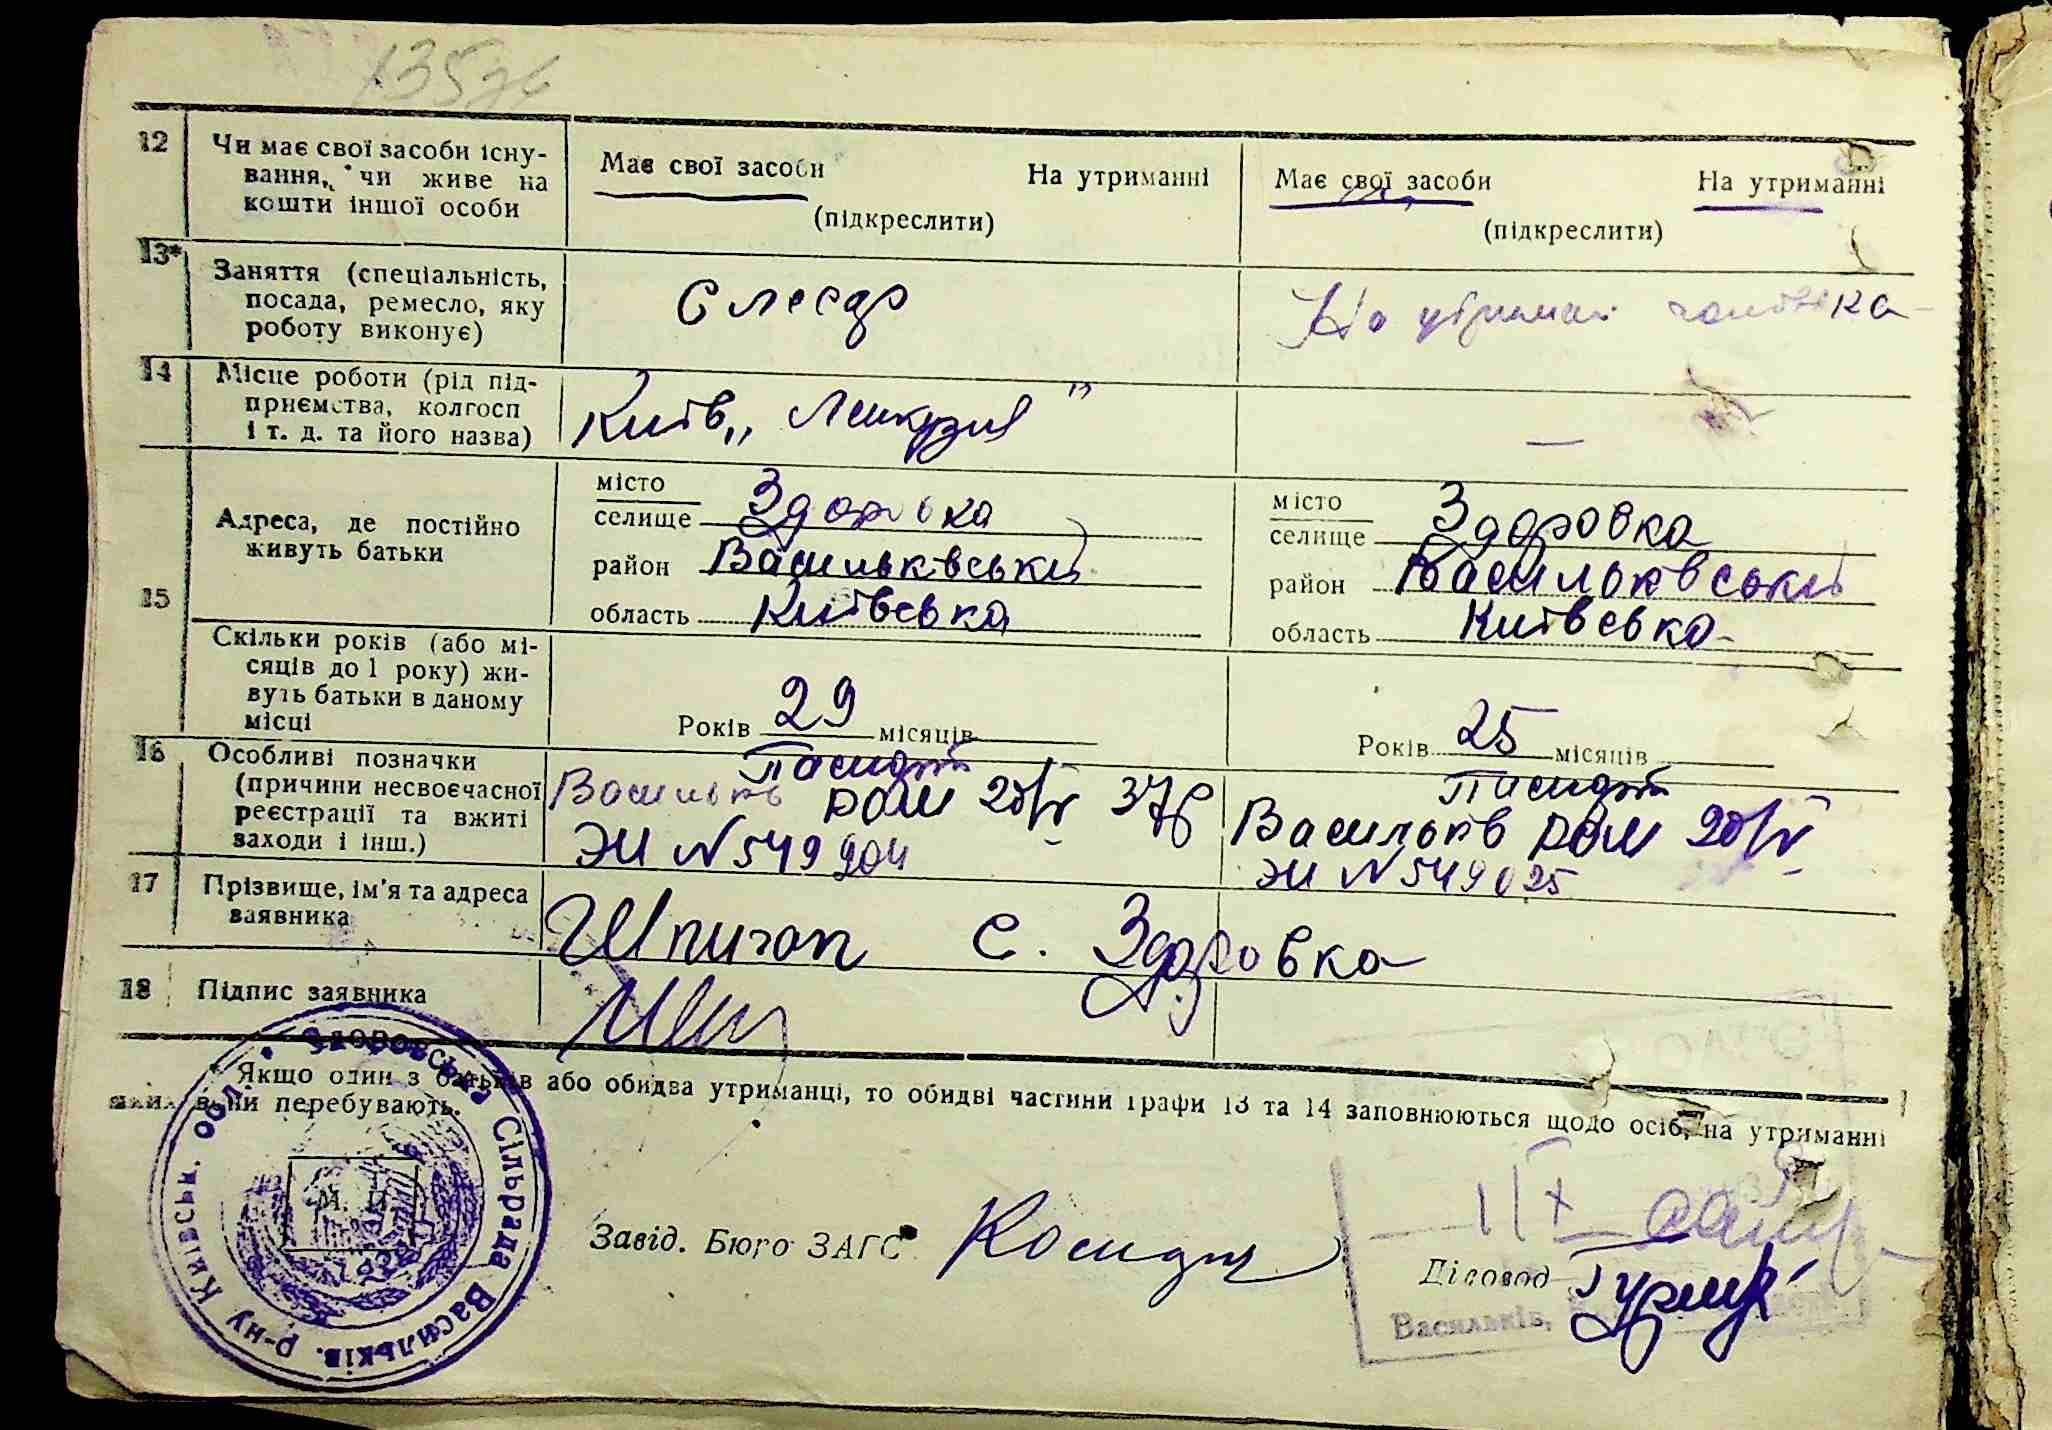 12 Чи має свої засоби існу-
вання, чи живе на
кошти іншої особи
Має свої засоби На утриманні
(підкреслити)
Має свої засоби На утриманні
(підкреслити)
13* Заняття (спеціальність,
посада, ремесло, яку
роботу виконує)
Слесар
На утриман чоловіка
14 Місце роботи (рід під-
приємства, колгосп
і т. д. та його назва)
Київ „Ленкузня"
—
15 Адреса, де постійно
живуть батьки
місто
селище Здоровка
район Васильківський
область Київська
місто
селище Здоровка
район Васильковський
область Київська
Скільки років (або мі-
сяців до 1 року) жи-
вуть батьки в даному
місці
Років 29 місяців
Років 25 місяців
16 Особливі позначки
(причини несвоєчасної
реєстрації та вжиті
заходи і інш.)
Паспорт
Васильків РОМ 20/IV 37р
ЭИ N 549904
Паспорт
Васильків РОМ 20/IV
ЭИ N 549025
17 Прізвище, ім'я та адреса
заявника
Шпигоп с. Здоровка
18 Підпис заявника
Якщо один з батьків або обидва утриманці, то обидві частини графи 13 та 14 заповнюються щодо осіб, на утриманні
яких вони перебувають.
Здоровська Сільрада Васильків. р-ну Київськ. обл.
М. П.
Завід. Бюро ЗАГС
Діловод
Васильків,